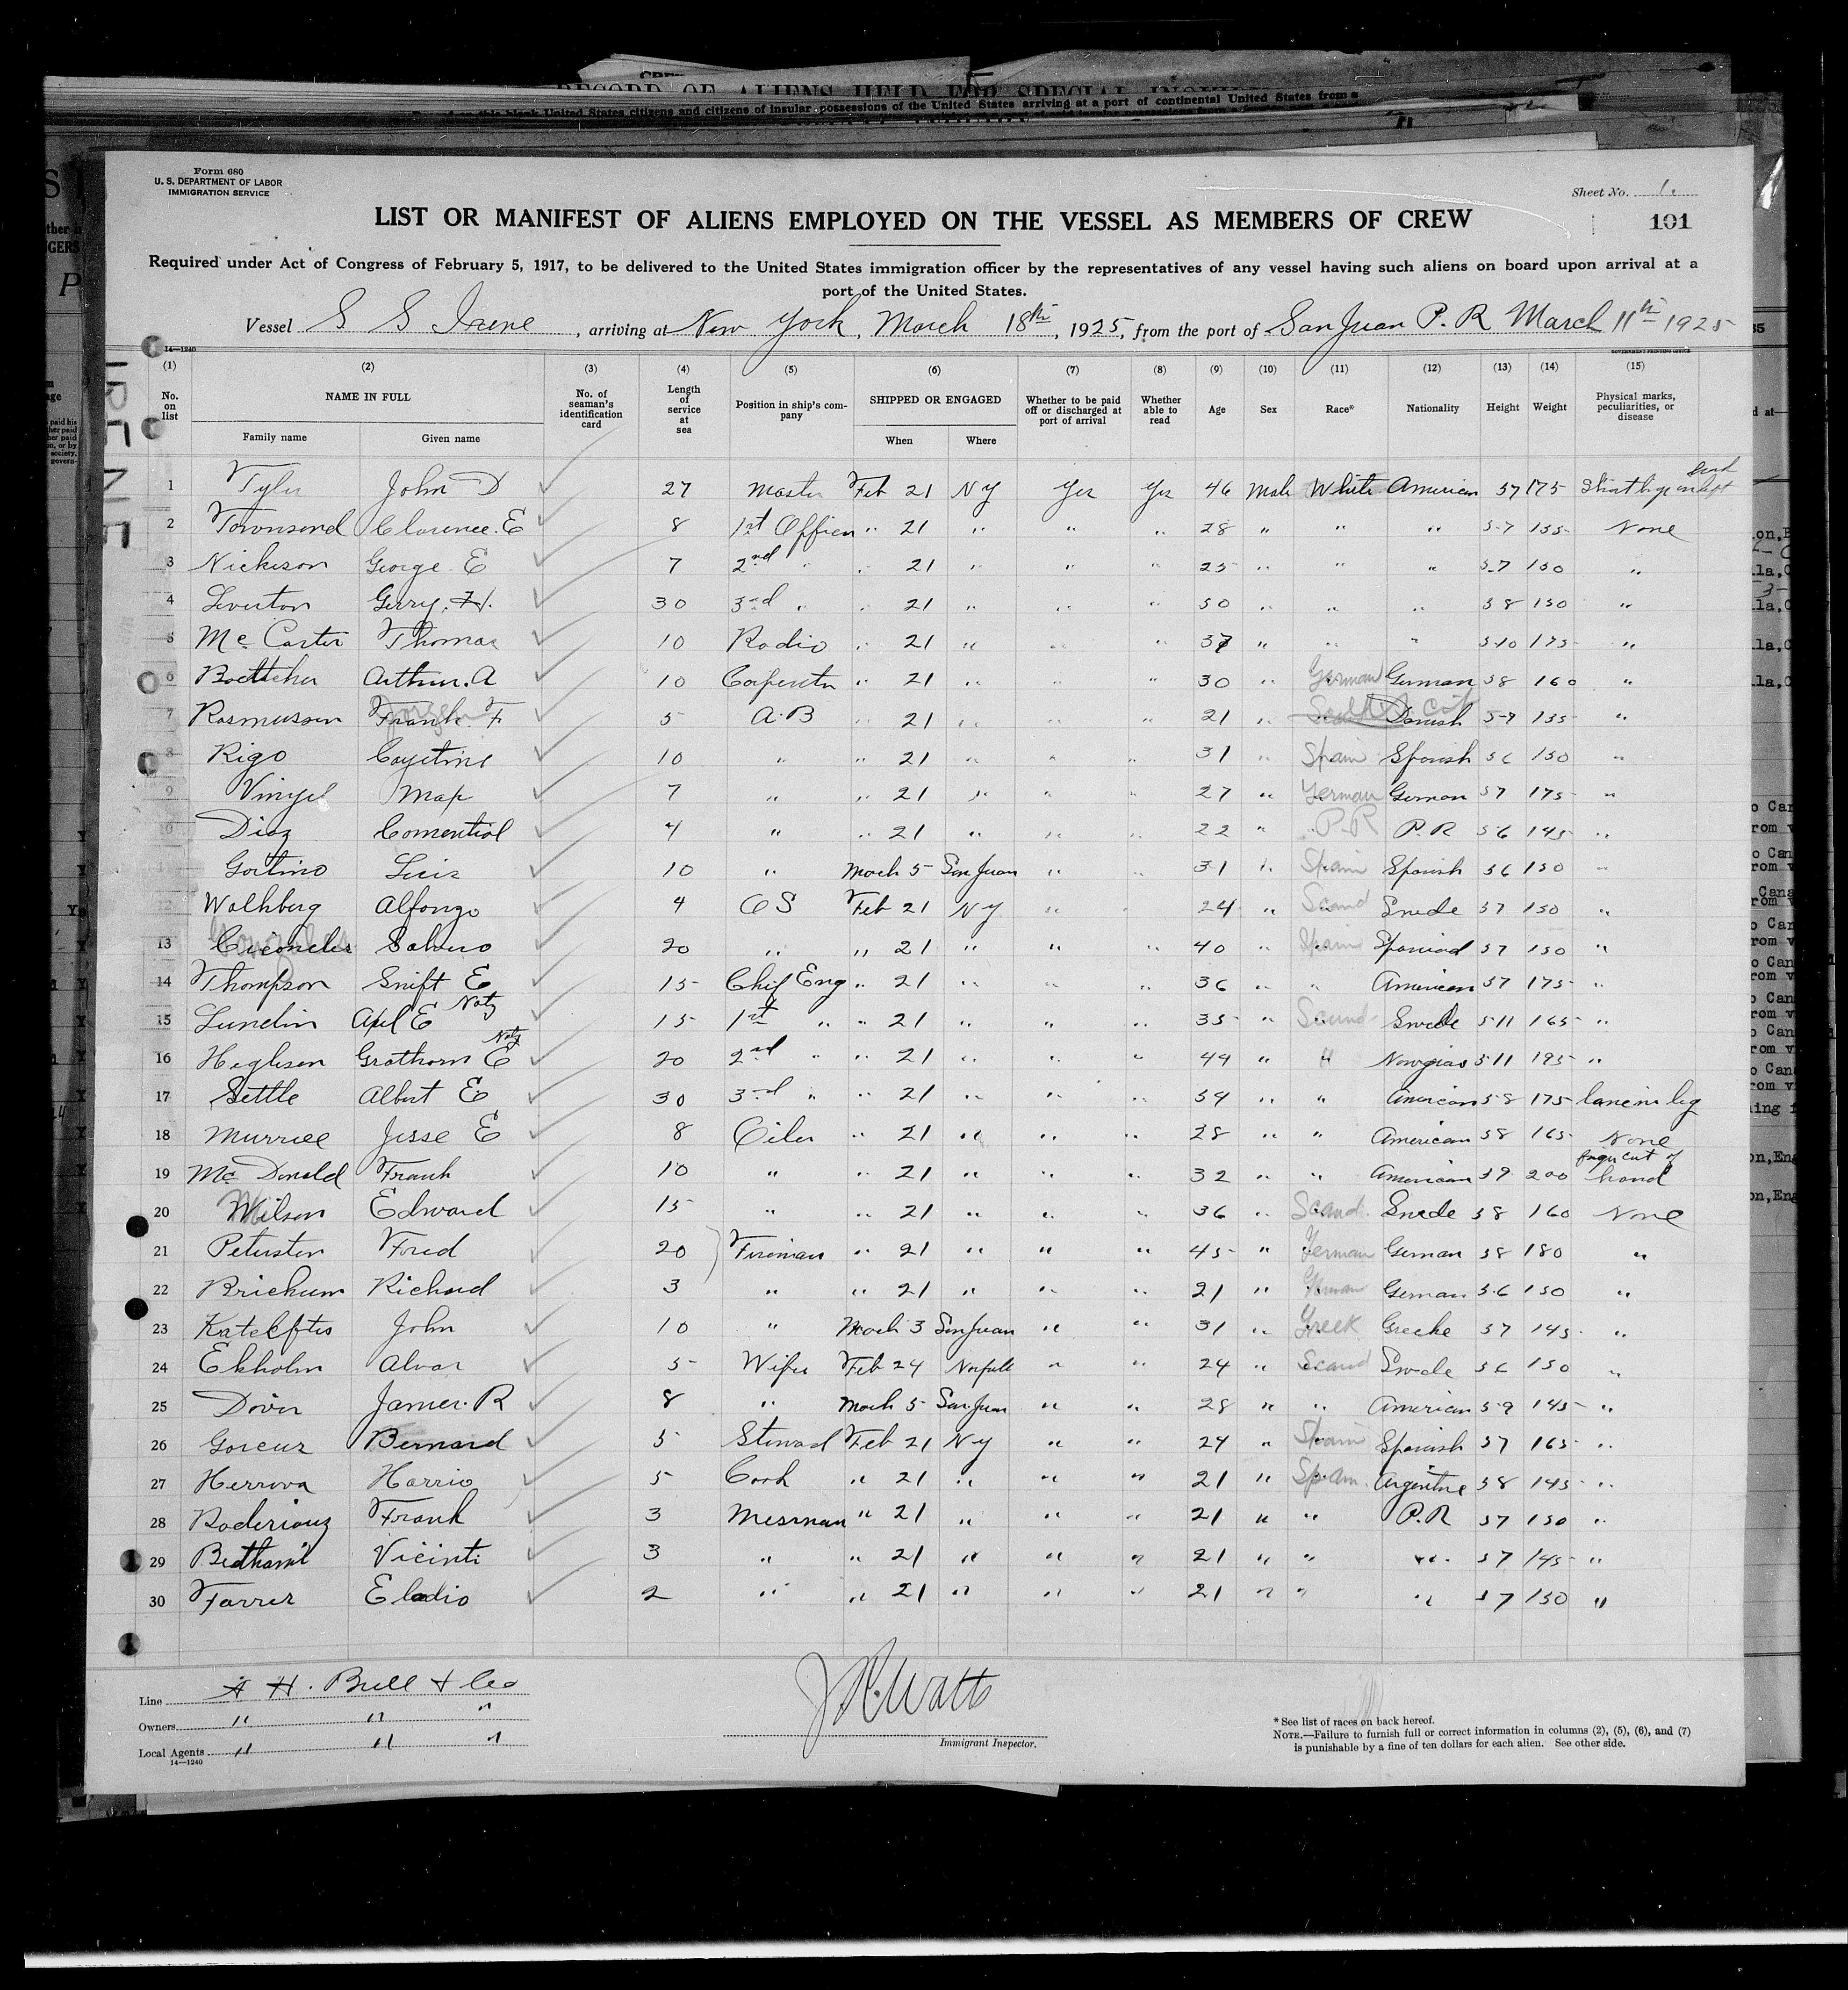 RECORD OF ALIENS HELD FOR SPECIAL
on this blank United States citizens and citizens of insular possessions of the United States arriving at a port of continental United States from a
Form 680
U. S. DEPARTMENT OF LABOR
IMMIGRATION SERVICE
Sheet No. 1.
LIST OR MANIFEST OF ALIENS EMPLOYED ON THE VESSEL AS MEMBERS OF CREW
101
Required under Act of Congress of February 5, 1917, to be delivered to the United States immigration officer by the representatives of any vessel having such aliens on board upon arrival at a
port of the United States.
Vessel S S Irene, arriving at New York, March 18th, 1925, from the port of San Juan P. R March 11th 1925
14—1240
GOVERNMENT PRINTING OFFICE
IRENE
(1) (2) (3) (4) (5) (6) (7) (8) (9) (10) (11) (12) (13) (14) (15)
No. on list NAME IN FULL No. of seaman's identification card Length of service at sea Position in ship's company SHIPPED OR ENGAGED Whether to be paid off or discharged at port of arrival Whether able to read Age Sex Race* Nationality Height Weight Physical marks, peculiarities, or disease
Family name Given name When Where
1 Tyler John D 27 Master Feb 21 N Y Yes Yes 46 Male White American 57 175
2 Townsend Clarence. E 8 1st Officer " 21 " " " 28 " " " 5-7 135 None
3 Nickerson George E 7 2nd " " 21 " " " 25 " " " 5-7 150 "
4 Leverton Gerry. H. 30 3rd " " 21 " " " 50 " " " 58 150 "
5 Mc Carter Thomas 10 Radio " 21 " " " 37 " " " 5-10 175 "
6 Boettcher Arthur. A 10 Carpenter " 21 " " " 30 " German German 58 160 "
7 Rasmussen Frank. F 5 A. B " 21 " " " 21 " Danish 5-7 135 "
8 Rigo Cayetine 10 " " 21 " " " 31 " Spain Spanish 56 150 "
9 Vinyel Max 7 " " 21 " " " 27 " German German 57 175 "
10 Diaz 4 " " 21 " " " 22 " P.R P. R 5-6 145 "
11 Luis 10 " March 5 San Juan " " 31 " Spain Spanish 56 150 "
12 Wahlberg Alfonzo 4 O S Feb 21 N Y " " 24 " Scand Swede 57 150 "
13 20 " " 21 " " " 40 " Spain Spaniard 57 150 "
14 Thompson Swift E 15 Chief Eng " 21 " " " 36 " " American 57 175 "
15 Lundin Axel E Natz 15 1st " " 21 " " " 35 " Scand Swede 5-11 165 "
16 E Natz 20 2nd " " 21 " " " 44 " " 5-11 195 "
17 Settle Albert E 30 3rd " " 21 " " " 54 " " American 5-8 175 lame in leg
18 Murrell Jesse E 8 Oiler " 21 " " " 28 " " American 58 165 None
19 Mc Donald Frank 10 " " 21 " " " 32 " " American 59 200 finger cut of hand
20 Edward 15 " " 21 " " " 36 " Scand. Swede 58 160 None
21 Petersten Fred 20 Fireman " 21 " " " 45 " German German 58 180 "
22 Richard 3 " " 21 " " " 21 " German German 5-6 150 "
23 Kateleftis John 10 " March 3 San Juan " " 31 " Greek Greeke 57 145 "
24 Ekholm Alvar 5 Wiper Feb 24 Norfolk " " 24 " Scand Swede 56 150 "
25 Dover James. R 8 " March 5 San Juan " " 28 " " American 5-9 145 "
26 Bernard 5 Steward Feb 21 N Y " " 24 " Spain Spanish 57 165 "
27 Herrera Harrio 5 Cook " 21 " " " 21 " Spain. Argentine 58 145 "
28 Roderiouz Frank 3 Messman " 21 " " " 21 " " P. R 57 150 "
29 Vicinti 3 " " 21 " " " 21 " " " 57 145 "
30 Farrer Eladio 2 " " 21 " " " 21 " " " 57 150 "
Line A H. Bull & Co
Owners " " "
Local Agents " " "
14—1240
Watts
Immigrant Inspector.
* See list of races on back hereof.
NOTE.—Failure to furnish full or correct information in columns (2), (5), (6), and (7)
is punishable by a fine of ten dollars for each alien. See other side.